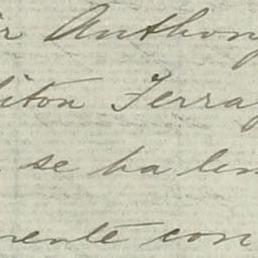 ir Anthony
liton Terra
se ha
rente con